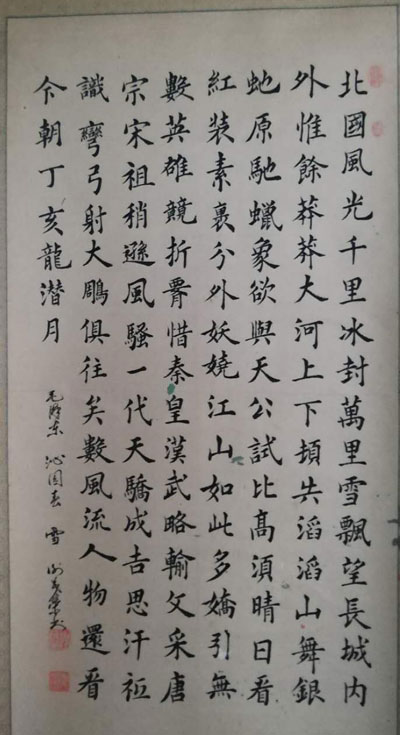 北國風光千里冰封萬里雪飄望長城内
外惟餘莽莽大河上下頓失滔滔山舞銀
虵原馳蠟象欲與天公試比髙須晴日看
紅装素裹分外妖嬈江山如此多嬌引無
數英雄競折惜秦皇漢武略輸文采唐
宗宋祖稍遜風騷一代天驕成吉思汗祗
識彎弓射大鵰俱往矣數風流人物還看
今朝丁亥龍潜月
毛泽东 沁园春 雪